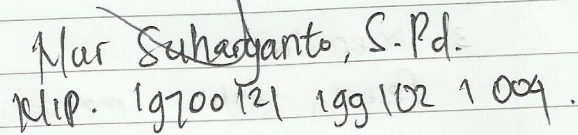 Mur Suharyanto, S.Pd.
NIP. 19700121 199102 1 004.